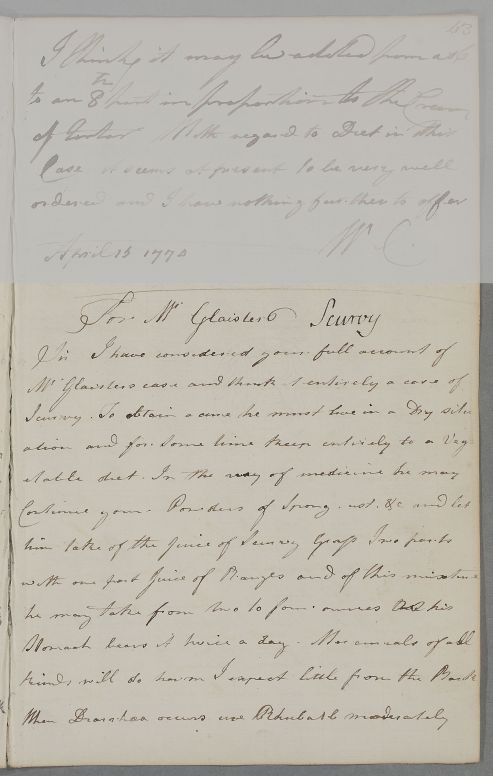 43
I think it may be added from a 6th
to an 8th part in proportion to the Cream
of Tartar. With regard to Diet in this
Case it seems at present to be very well
ordered and I have nothing further to offer
April 15 1770 W C.
For Mr Glaister Scurvy
Sir I have considered your full account of
Mr Glaisters case and think it entirely a case of
Scurvy. To obtain a cure he must live in a Dry situ
ation and for some time keep entirely to a Veg
etable diet. In the way of medicine he may
Continue your Powders of Spong. ust. &c and let
him take of the juice of Scurvy Grass Two parts
with one part juice of Oranges and of this mixture
he may take from two to four ounces as his
Stomach bears it twice a day. Mercurials of all
kinds will do harm I expect little from the Bark
When Diarrhaa occurs use Rhubarb moderately